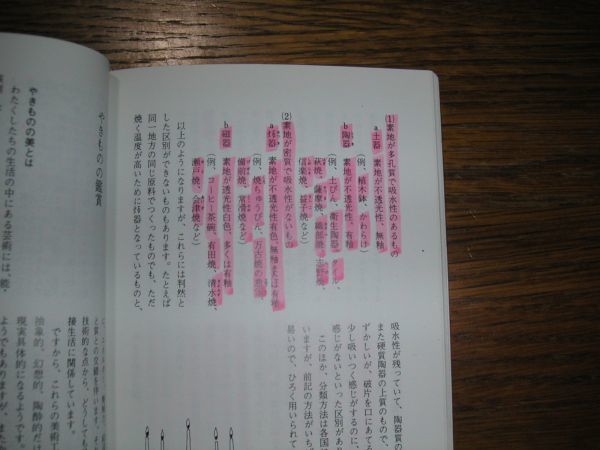 (1)素地が多孔質で吸水性のあるもの
a土器 素地が不透光性、無釉
(例、植木鉢、かわらけ)
b陶器 素地が不透光性、有釉
(例、土びん、衛生陶器、タイル、
萩焼、薩摩焼、織部焼、志野焼、
信楽焼、益子焼など)
(2)素地が密質で吸水性がないもの
a炻器 素地が不透光性有色、無釉または有釉
(例、焼ちゅうびん、万古焼の急須、
備前焼、常滑焼など)
b磁器 素地が透光性白色、多くは有釉
(例、コーヒー茶碗、有田焼、清水焼、
瀬戸焼、会津焼など)
以上のようになりますが、これらには判然と
した区別ができないものもあります。たとえば
同一地方の同じ原料でつくったものでも、ただ
焼く温度が高いために炻器となっているものと、
吸水性が残っていて、陶器質の
また硬質陶器の上質のもので、
ずかしいが、破片を口にあてる
少し吸いつく感じがするのに、
感じがないといった区別があり
このほか、分類方法は各国に
いますが、前記の方法がいち
易いので、ひろく用いられて
やきものの鑑賞
やきものの美とは
わたくしたちの生活の中にある芸術には、能・
技術的な点から、どうしても
接生活に関係しています。
ですから、これらの美術
抽象的、幻想的、陶酔的だけ
現実具体的になるようです。
ようでもありますが、また